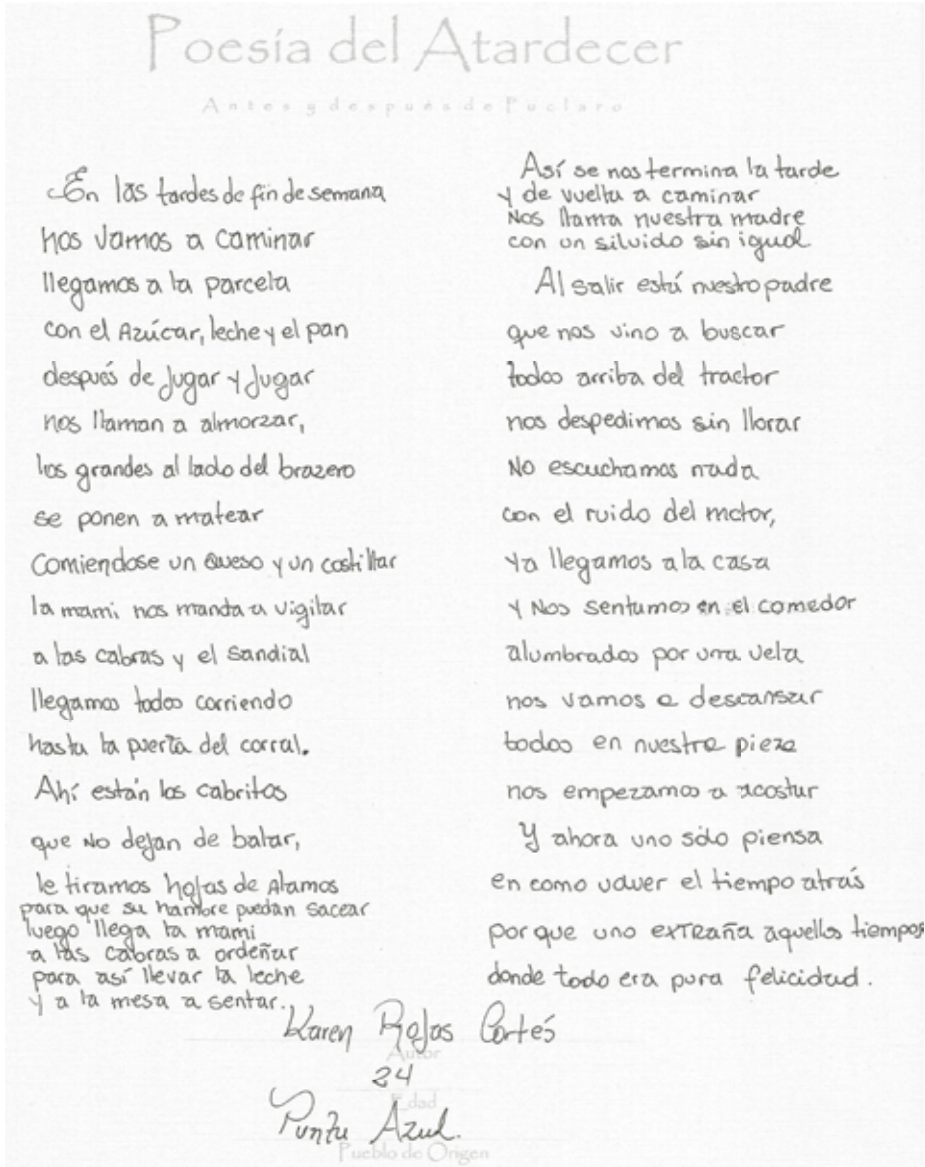 Poesía del Atardecer
Antes y después de Puclaro
En las tardes de fin de semana
nos vamos a caminar
llegamos a la parcela
con el Azúcar, leche y el pan
después de jugar y jugar
nos llaman a almorzar,
los grandes al lado del brazero
se ponen a matear
Comiendose un Queso y un costillar
la mami nos manda a vigilar
a las cabras y el sandial
llegamos todos corriendo
hasta la puerta del corral.
Ahí están los cabritos
que No dejan de balar,
le tiramos hojas de Alamos
para que su hambre puedan sacear
luego llega la mami
a las cabras a ordeñar
para así llevar la leche
y a la mesa a sentar.
Así se nos termina la tarde
y de vuelta a caminar
Nos llama nuestra madre
con un silvido sin igual
Al salir está nuestro padre
que nos vino a buscar
todos arriba del tractor
nos despedimos sin llorar
No escuchamos nada
con el ruido del motor,
ya llegamos a la casa
y Nos sentamos en el comedor
alumbrados por una vela
nos vamos a descansar
todos en nuestra pieza
nos empezamos a acostar
Y ahora uno sólo piensa
en como volver el tiempo atrás
por que uno extraña aquellos tiempos
donde todo era pura felicidad.
Karen Rojas Cortés
Autor
24
Edad
Punta Azul.
Pueblo de Origen